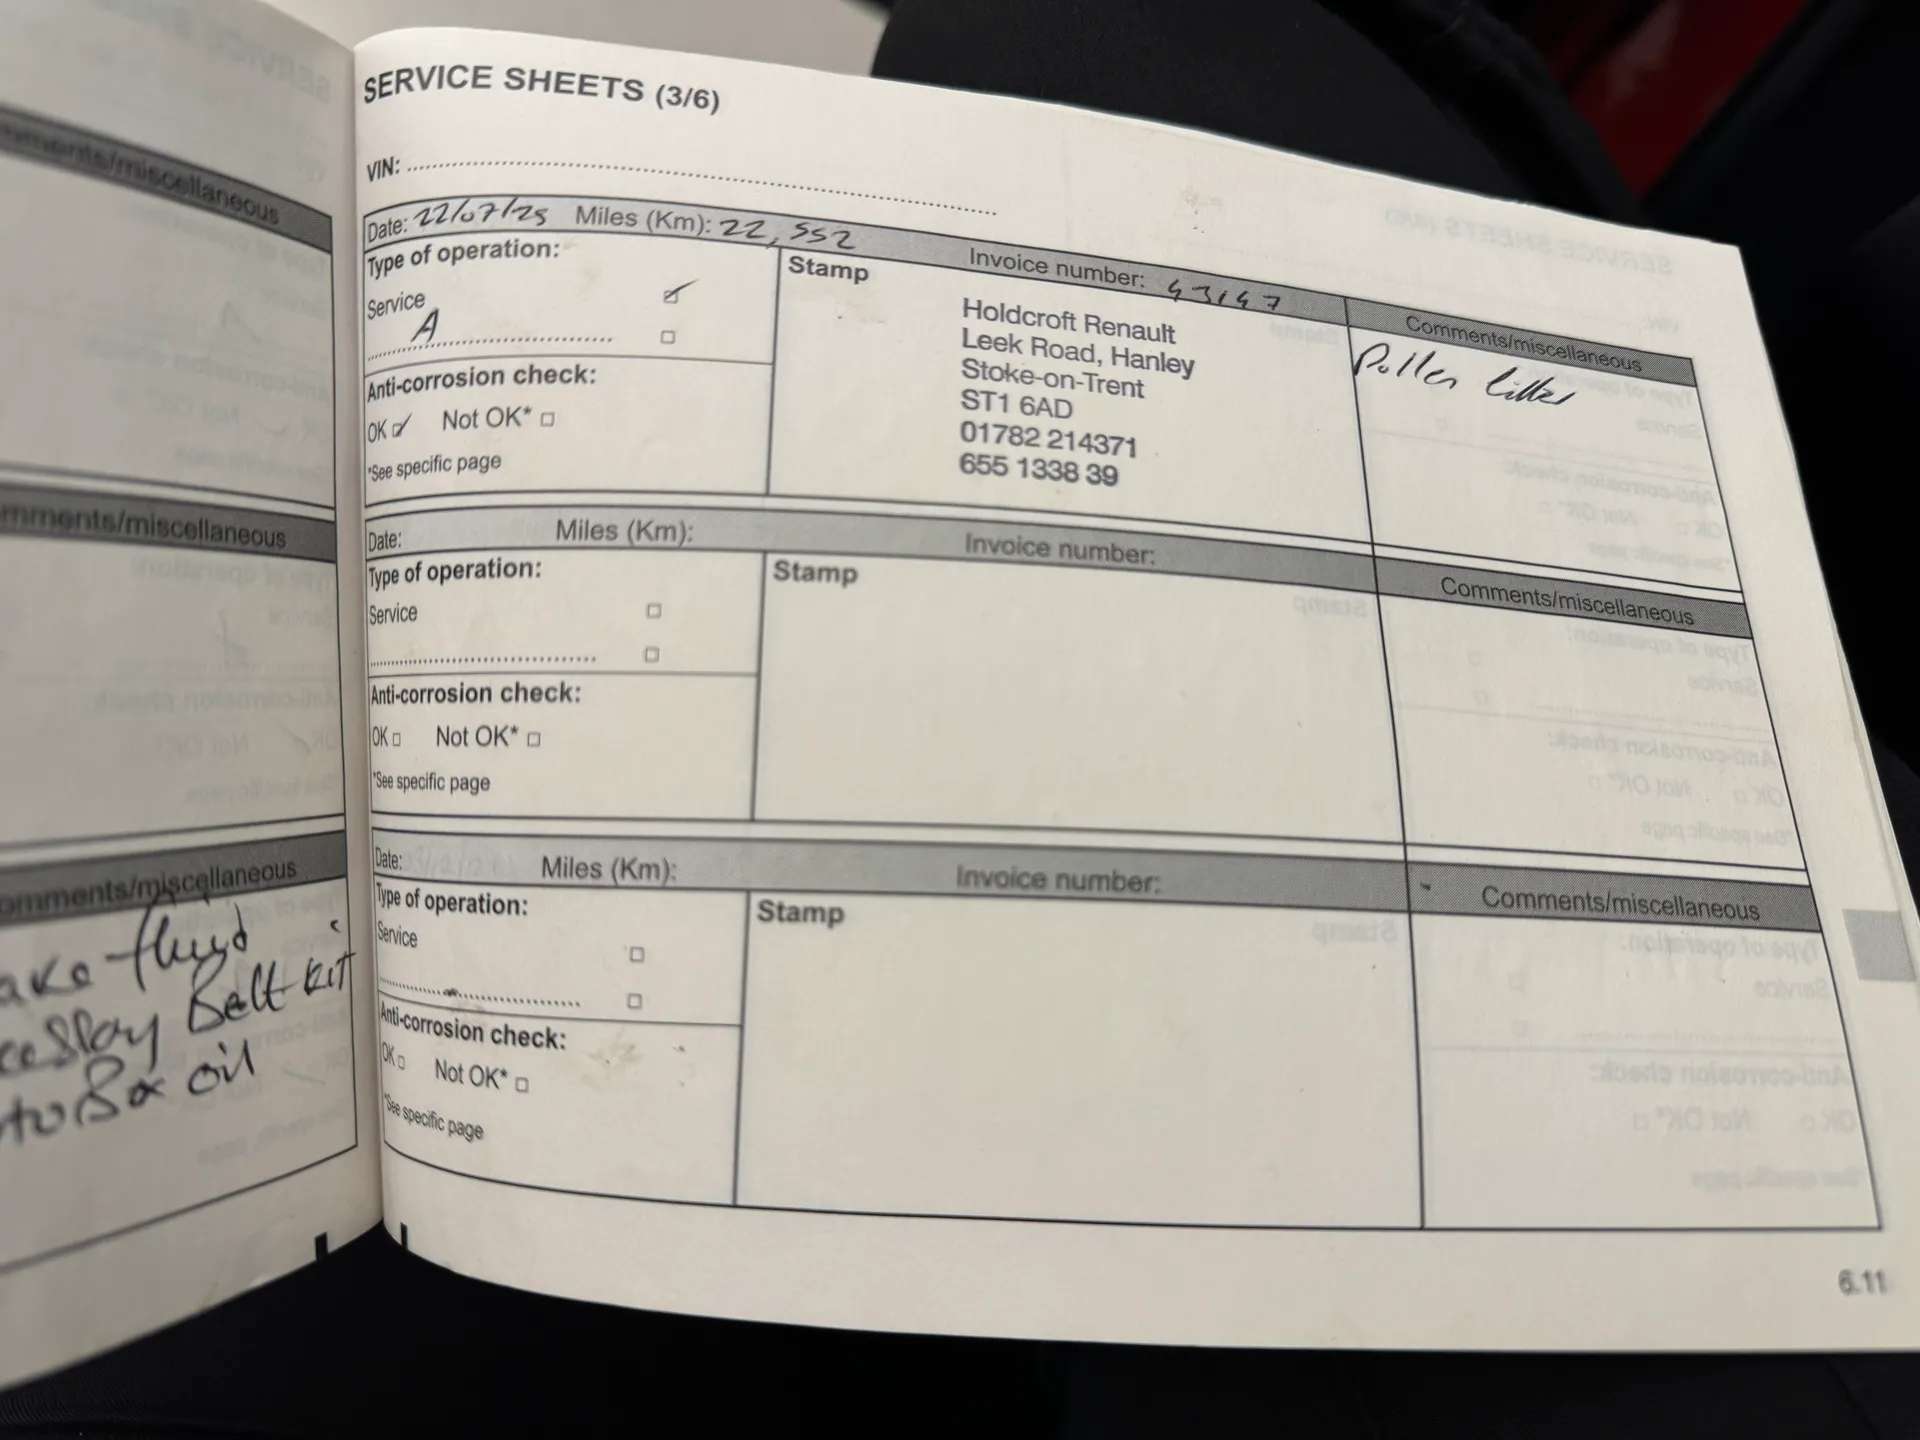 mments/miscellaneous
mments/miscellaneous
omments/miscellaneous
ake fluid
Belt KIT
oil
SERVICE SHEETS (3/6)
VIN:
Date: 22/07/25 Miles (Km): 22,552 Invoice number: 43147 Comments/miscellaneous
Type of operation:
Service
A
Anti-corrosion check:
OK Not OK*
*See specific page
Stamp
Holdcroft Renault
Leek Road, Hanley
Stoke-on-Trent
ST1 6AD
01782 214371
655 1338 39
Pollen
Date: Miles (Km): Invoice number: Comments/miscellaneous
Type of operation:
Service
Anti-corrosion check:
OK Not OK*
*See specific page
Stamp
Date: Miles (Km): Invoice number: Comments/miscellaneous
Type of operation:
Service
Anti-corrosion check:
OK Not OK*
*See specific page
Stamp
6.11